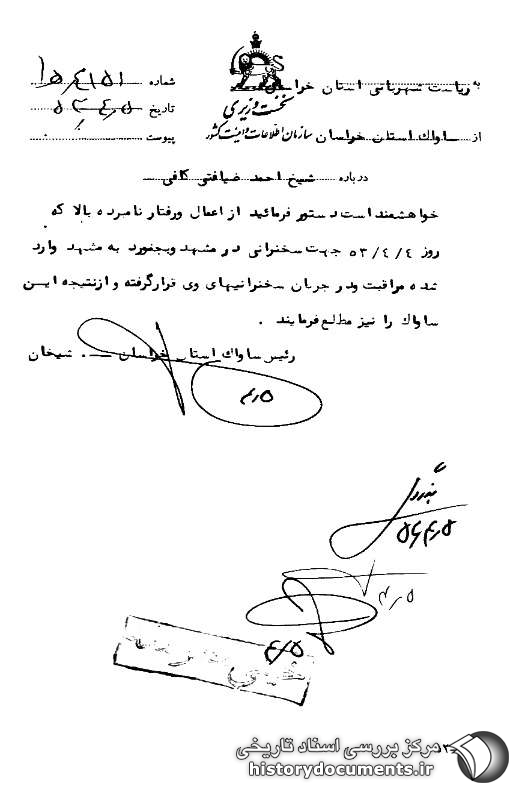 به ریاست شهربانی استان خراسان
نخست وزیری
سازمان اطلاعات و امنیت کشور
شماره
تاریخ ۵۳،۴،۵
پیوست
از ساواک استان خراسان
درباره شیخ احمد ضیافتی کافی
خواهشمند است دستور فرمائید از اعمال ورفتار نامبرده بالا که
روز ۵۳/٤/٤ جهت سخنرانی در مشهد وبجنورد به مشهد وارد
شده مراقبت ودر جریان سخنرانیهای وی قرارگرفته و ازنتیجه ایـن
ساواک را نیز مطلع فرمایند .
رئیس ساواک استان خراسان ــ. شیخان
۴٫۵
۴٫۵
۴٫۵
مرکز بررسی اسناد تاریخی
historydocuments.ir